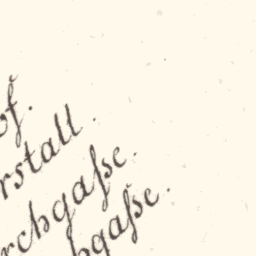 of.
rstall.
rchgaſse.
hgaſse.